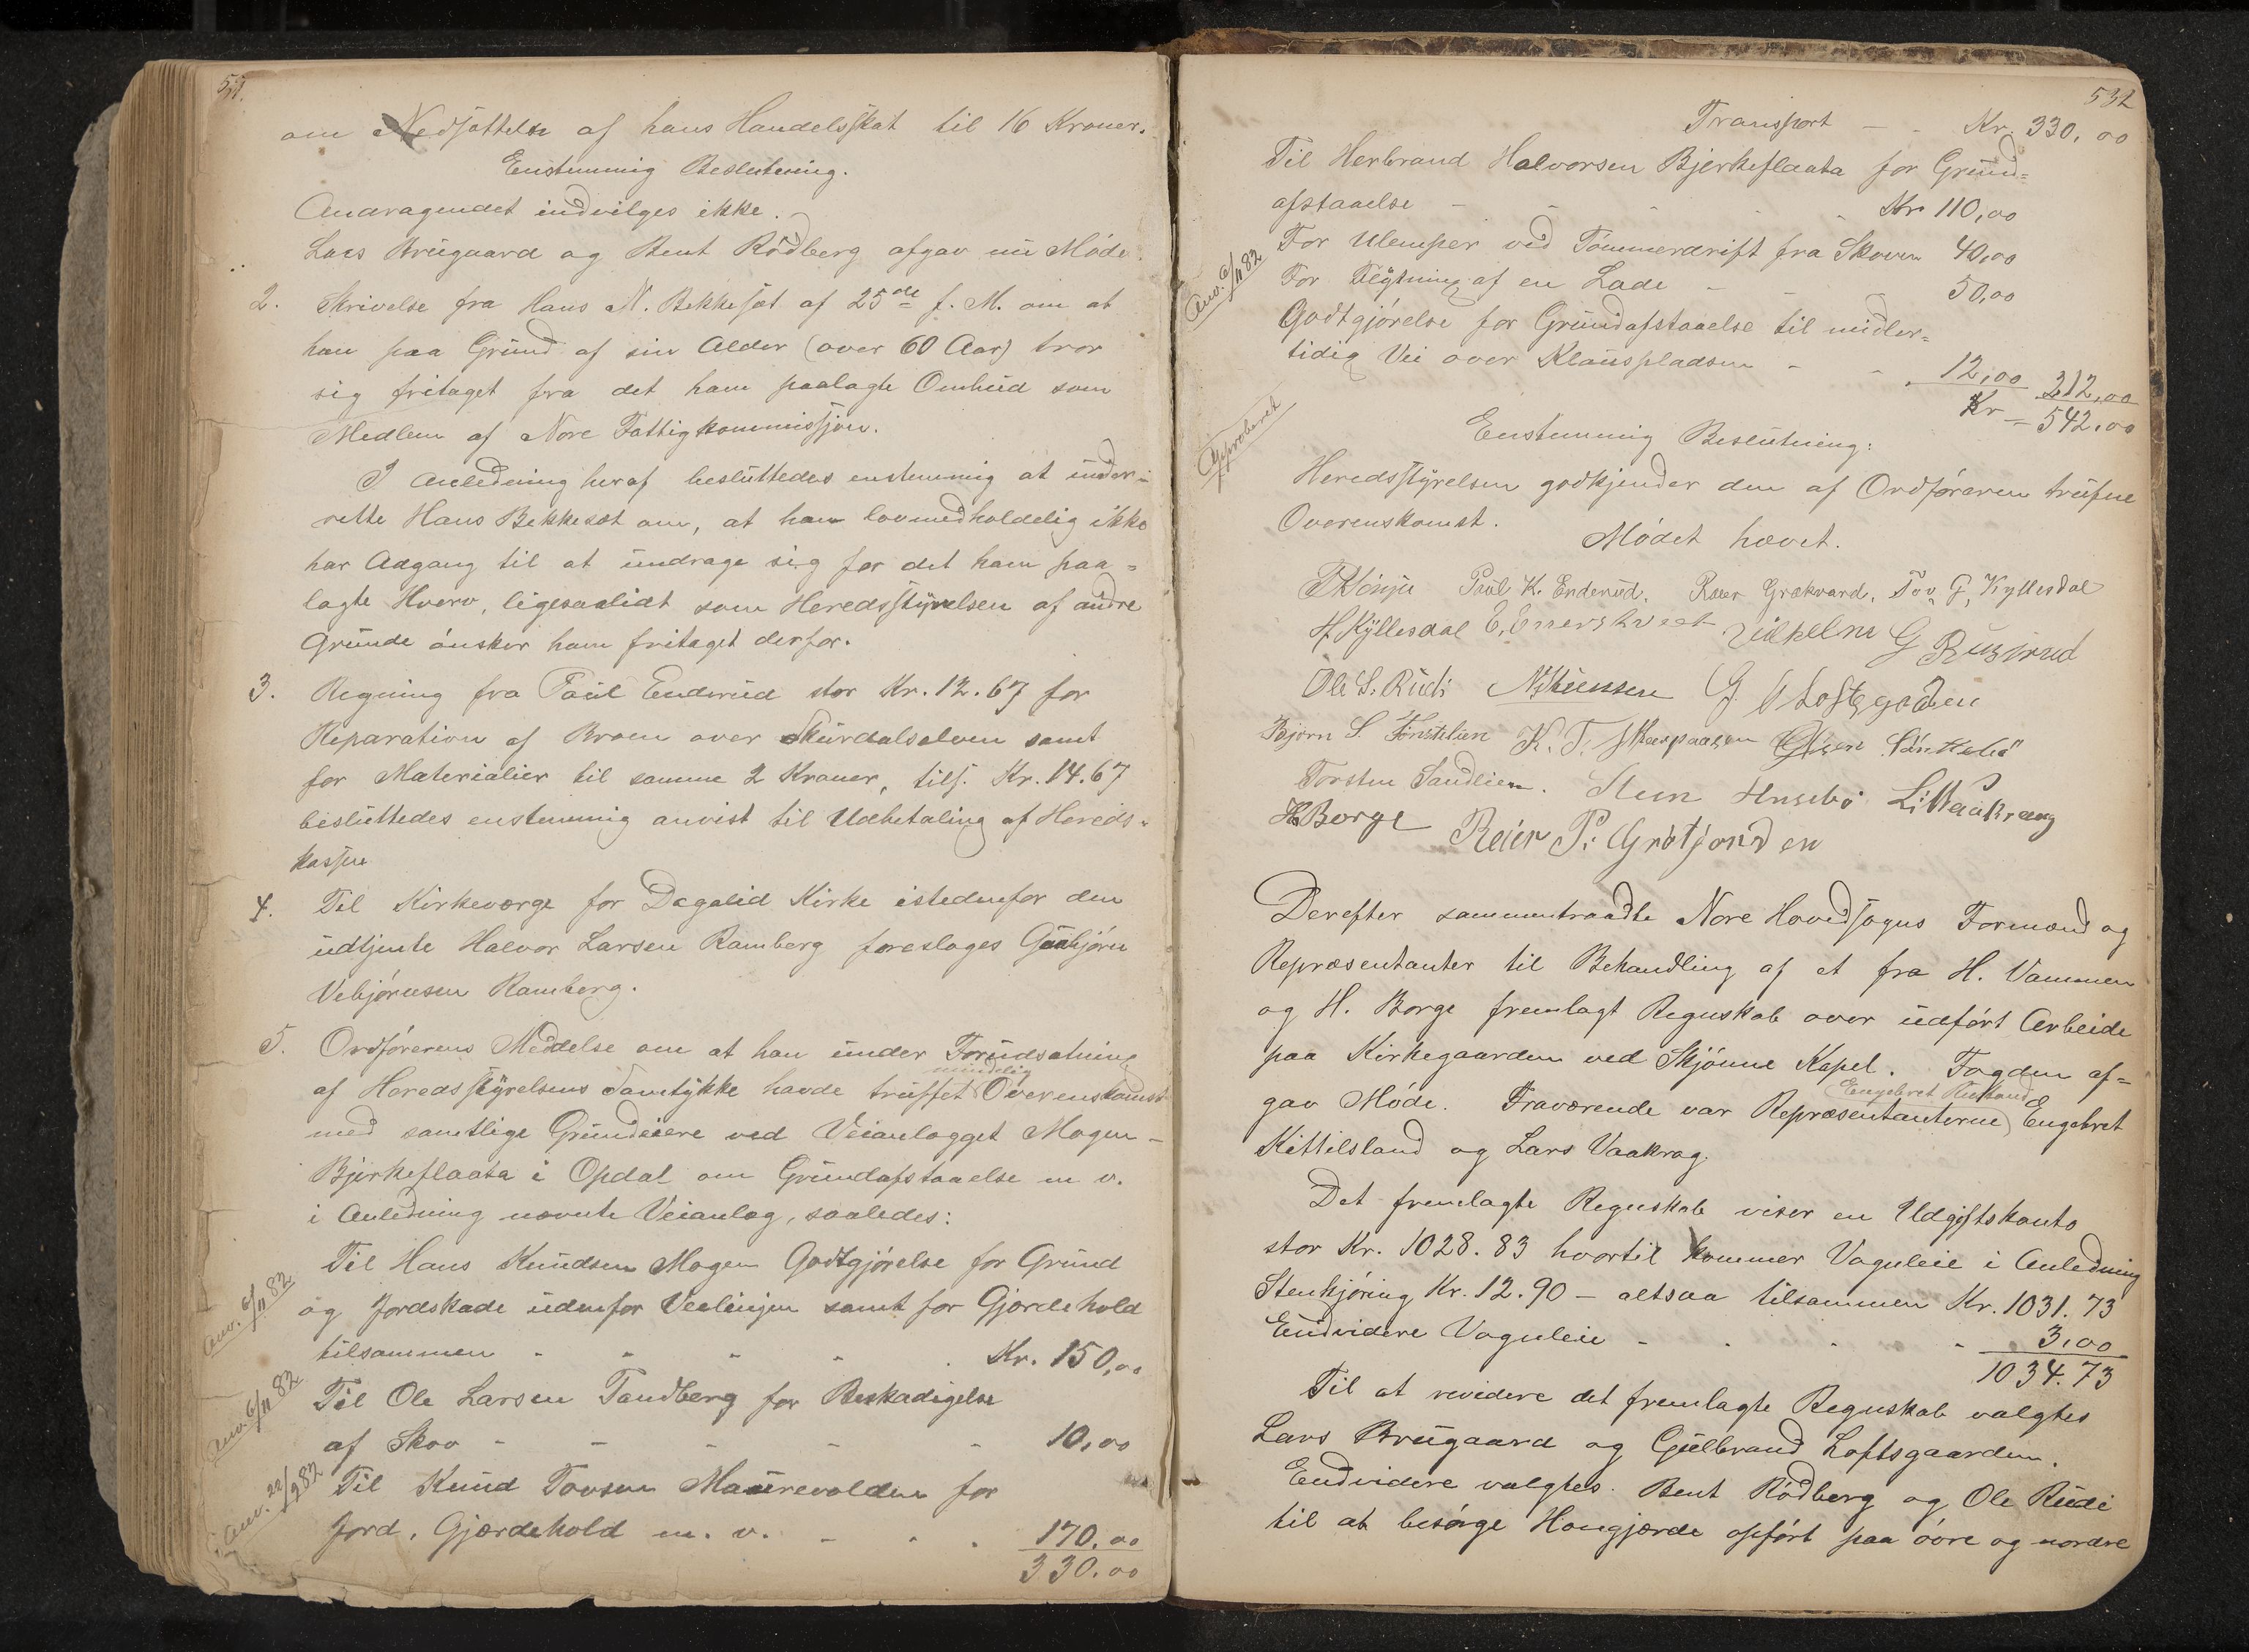 531.
om Nedsættelse af hans Handelsskat til 16 Kroner.
Enstemmig Beslutning.
Andragendet indvilges ikke.
Lars Brugaard og Bent Rødberg afgav nu Møde.
2. Skrivelse fra Hans N. Bekkesæt af 25de f. M. om at
han paa Grund af sin Alder (over 60 Aar) tror
sig fritaget fra det ham paalagte Ombud som
Medlem af Nore Fattigkommissjon.
I Anledning heraf besluttedes enstemmig at under-
rette Hans Bekkesæt om, at han lovmedholdelig ikke
har Adgang til at undrage sig for det ham paa=
lagte Hverv, ligesaalidt som Heredsstyrelsen af andre
Grunde ønsker ham fritaget derfor.
3. Regning fra Paul Enderud stor Kr. 12.67 for
Reparation af Broen over Skurdalselven samt
for Materialier til samme 2 Kroner, tils. Kr. 14.67
besluttedes enstemmig anvist til Udbetaling af Hereds-
kassen
4. Til Kirkeværge for Dagalid Kirke istedenfor den
udtjente Halvor Larsen Ramberg foreslages Gunbjørn
Vebjørnsen Ramberg.
5. Ordførerens Meddelse om at han under Forudsætning
mindelig
af Heredsstyrelsens Samtykke havde truffet Overenskomst
med samtlige Grundeiere ved Veianlægget Mogen-
Bjerkeflaata i Opdal om Grundafstaaelse m v.
i Anledning nævnte Veianlæg, saaledes:
Anv. 6/11 82
Til Hans Knudsen Mogen Godtgjørelse for Grund
og Jordskade udenfor Veilinjen samt for Gjærdehold
tilsammen - - - - - Kr. 150,00
Anv. 6/11 82
Til Ole Larsen Tandberg for Beskadigelse
af Skov - - - - - 10,00
Anv. 22/12 82
Til Knud Tovsen Maurevolden for
Jord, Gjærdehold m. v. - - - 170.00
330.00
532
Transport - - Kr. 330,00
Til Herbrand Halvorsen Bjerkeflaata for Grund=
afstaaelse - - - - - Kr 110,00
Anv. 6/11 82
For Ulemper ved Tømmerdrift fra Skoven 40,00
For Flytning af en Lade - - - 50,00
Godtgjørelse for Grundafstaaelse til midler=
tidig Vei over Klauspladsen - - 12,00 212,00
Kr - 542.00
Approberet
Enstemmig Beslutning:
Heredsstyrelsen godkjender den af Ordføreren trufne
Overenskomst.
Mødet hævet.
Tønju Paul K. Enderud. Tov. G. Kyllesdal
H. Kyllesdal Vilhelm G
Ole S. Rudi G. O Loftsgaarden
Bjørn S. K. T. Olsen
Torsten Sandlien. Sten L: Vaakraag
H Borge Reier P: Grøtjorden
Derefter sammentraadte Nore Hovedsogns Formænd og
Repræsentanter til Behandling af et fra H. Vammen
og H. Borge fremlagt Regnskab over udført Arbeide
paa Kirkegaarden ved Skjønne Kapel. Fogden af=
Engebret Rustand
gav Møde. Fraværende var Repræsentanterne Engebret
Kittilsland og Lars Vaakrag.
Det fremlagte Regnskab viser en Udgiftskonto
stor Kr. 1028.83 hvortil kommer Vognleie i Anledning
Stenkjøring Kr. 12.90 - altsaa tilsammen Kr. 1031.73
Endvidere Vognleie - - - - 3,00
1034.73
Til at revidere det fremlagte Regnskab valgtes
Lars Brugaard og Gulbrand Loftsgaarden.
Endvidere valgtes Bent Rødberg og Ole Rudi
til at besørge Havgjærde opført paa øvre og nordre